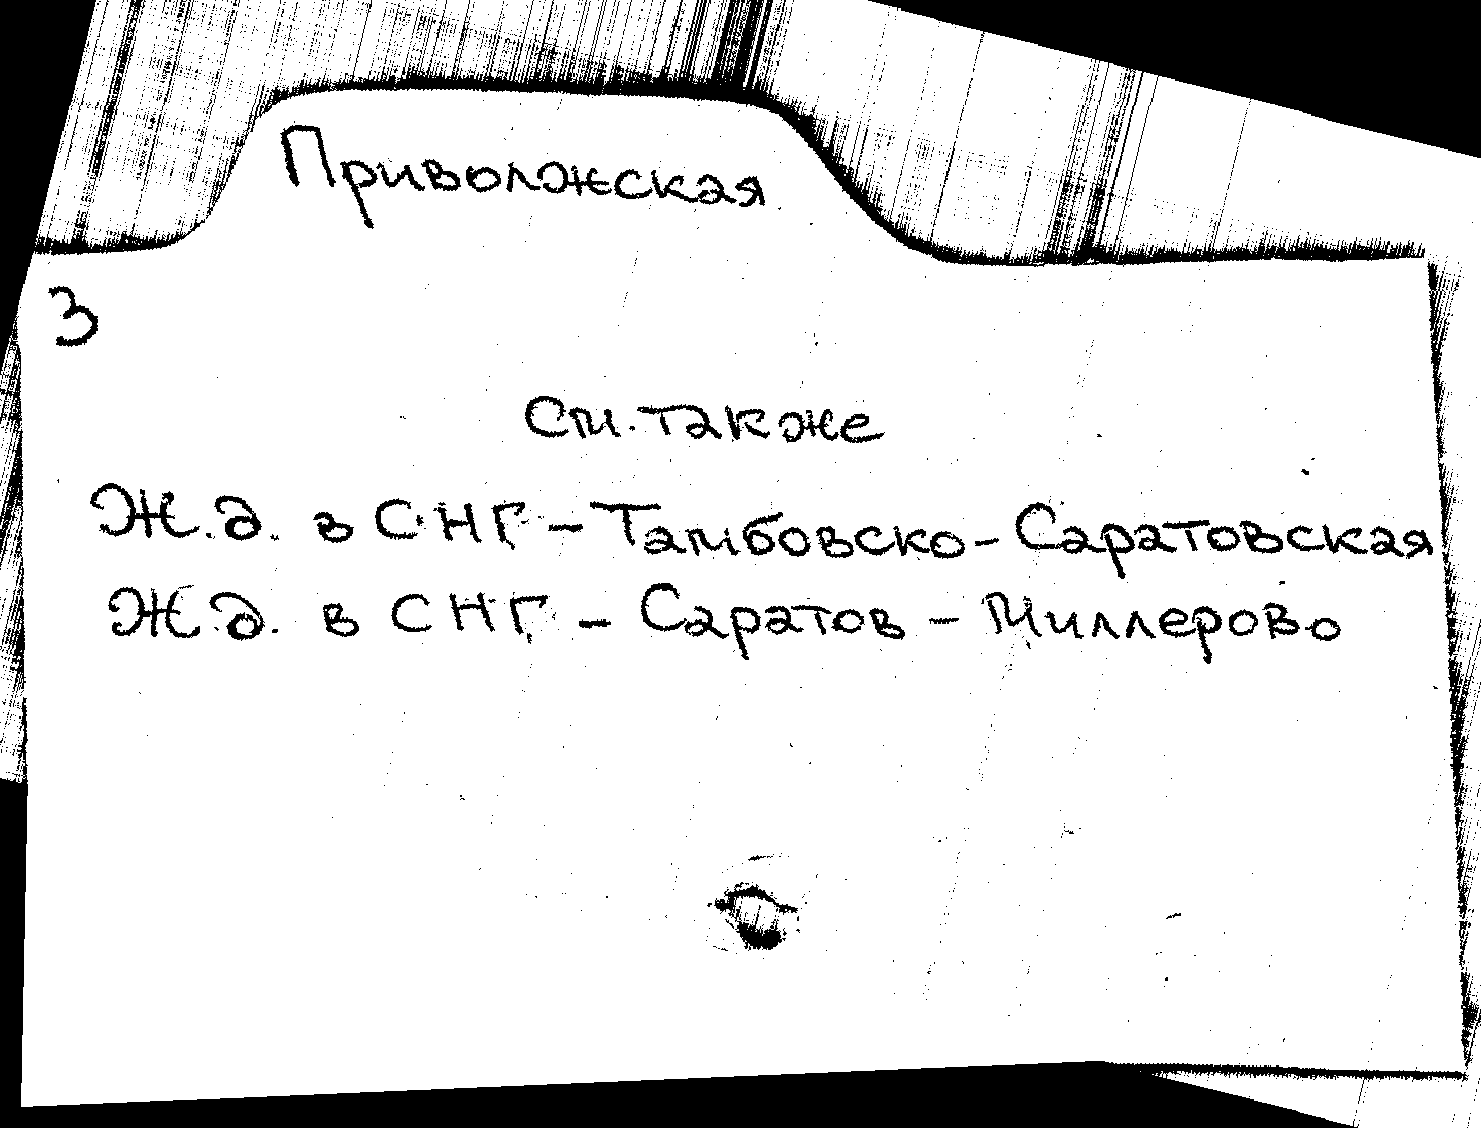 Приволжская
3
См. также
Ж.д. в СНГ - Тамбовско - Саратовская
Ж.д. в СНГ - Саратов - Миллерово